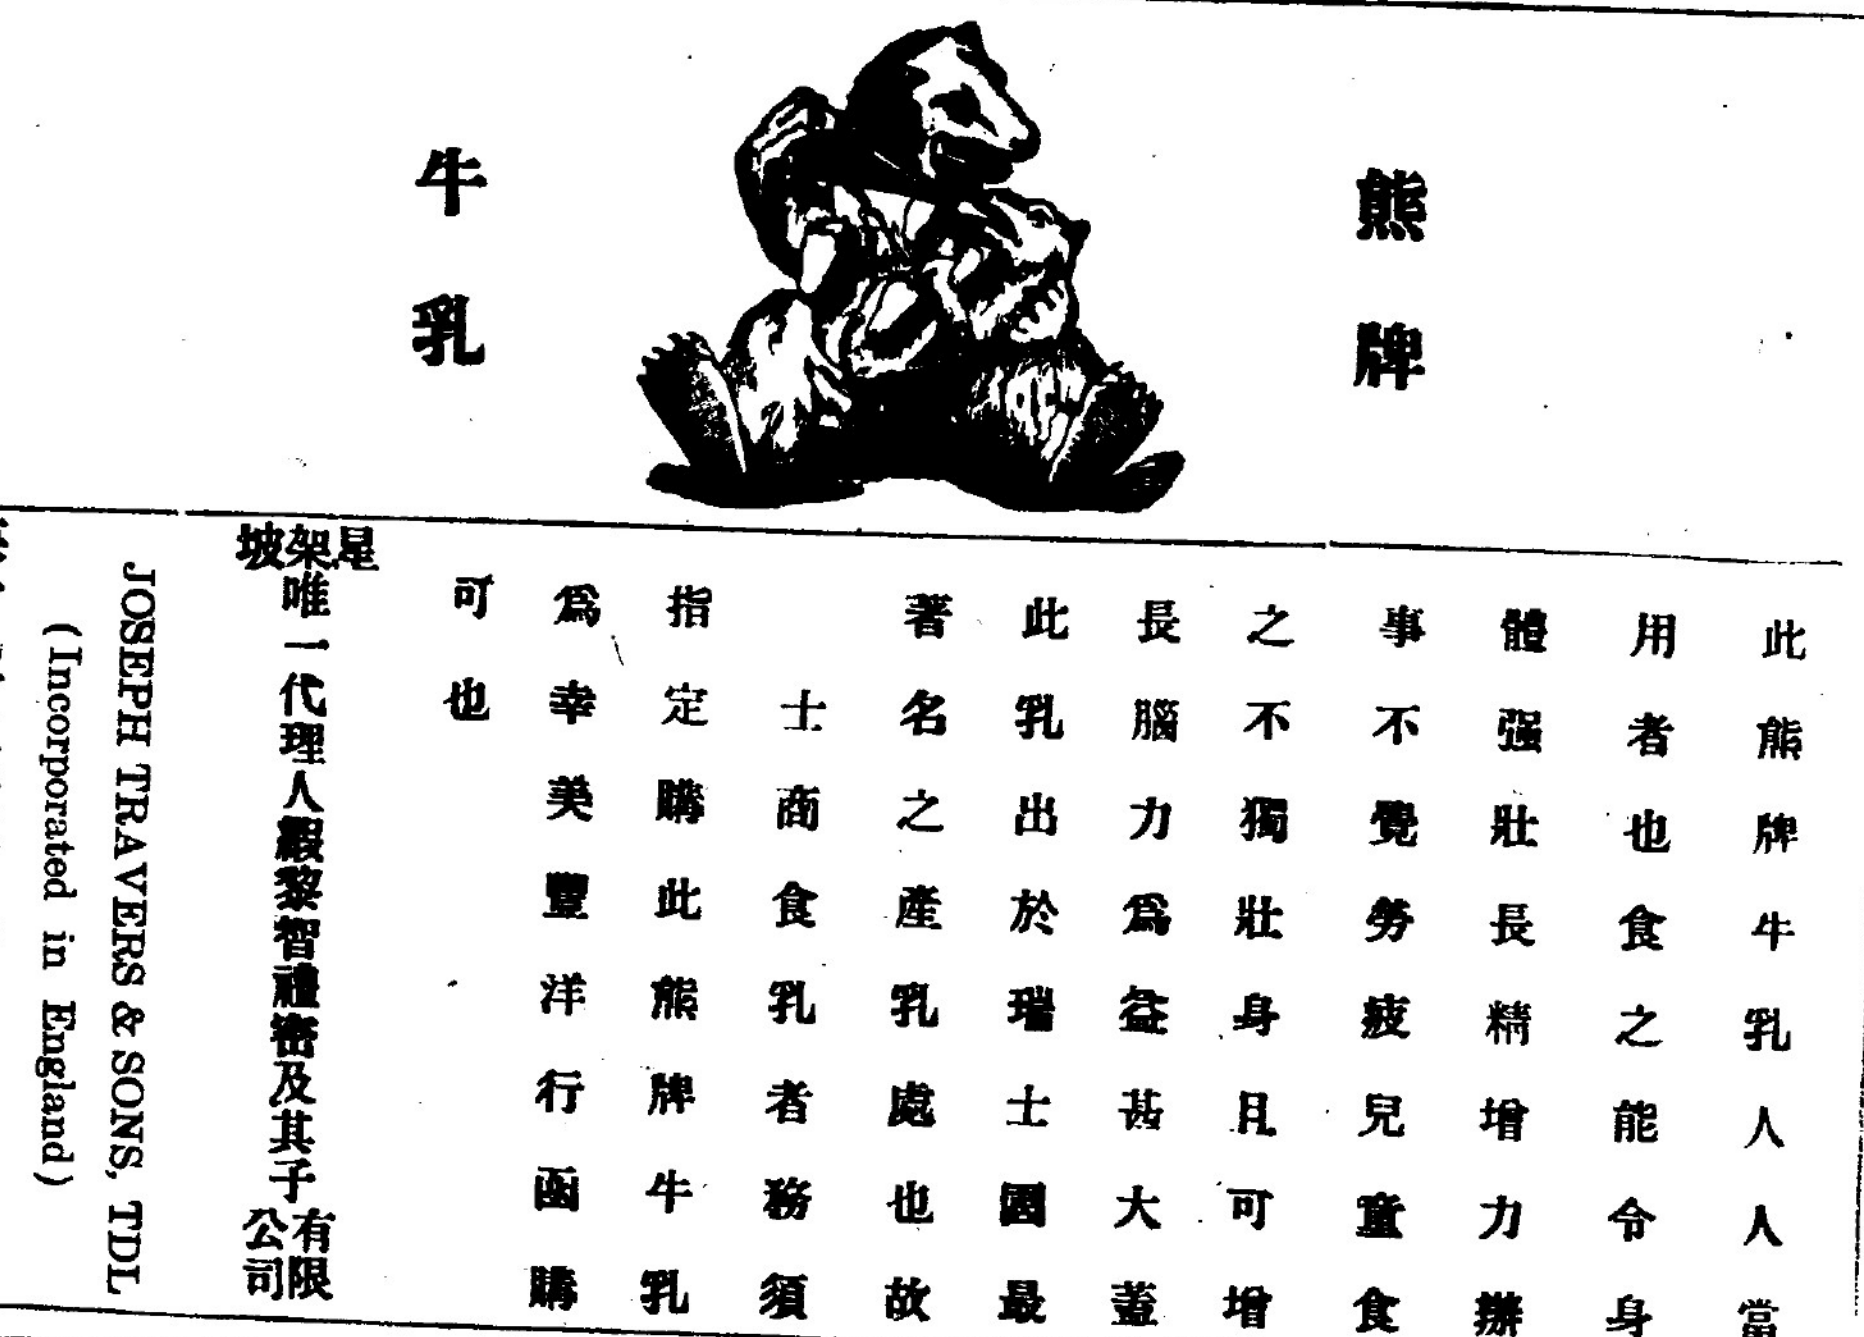 熊牌
牛乳
此熊牌牛乳人人當
用者也食之能令身
體强壯長精增力辦
事不覺勞疲兒童食
之不獨壯身且可增
長腦力爲益甚大蓋
此乳出於瑞士國最
著名之產乳處也故
士商食乳者務須
指定購此熊牌牛乳
爲幸美豐洋行函購
可也
星架坡
唯一代理人嘏黎智禮密及其子
有限公司
JOSEPH TRAVERS & SONS, TDL
(Incorporated in England)